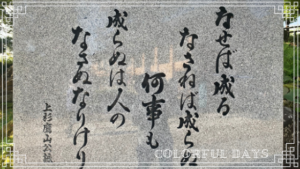 なせば成る
なさねば成らぬ
何事も
成らぬは人の
なさぬなりけり
上杉鷹山公訓
COLORFUL DAYS